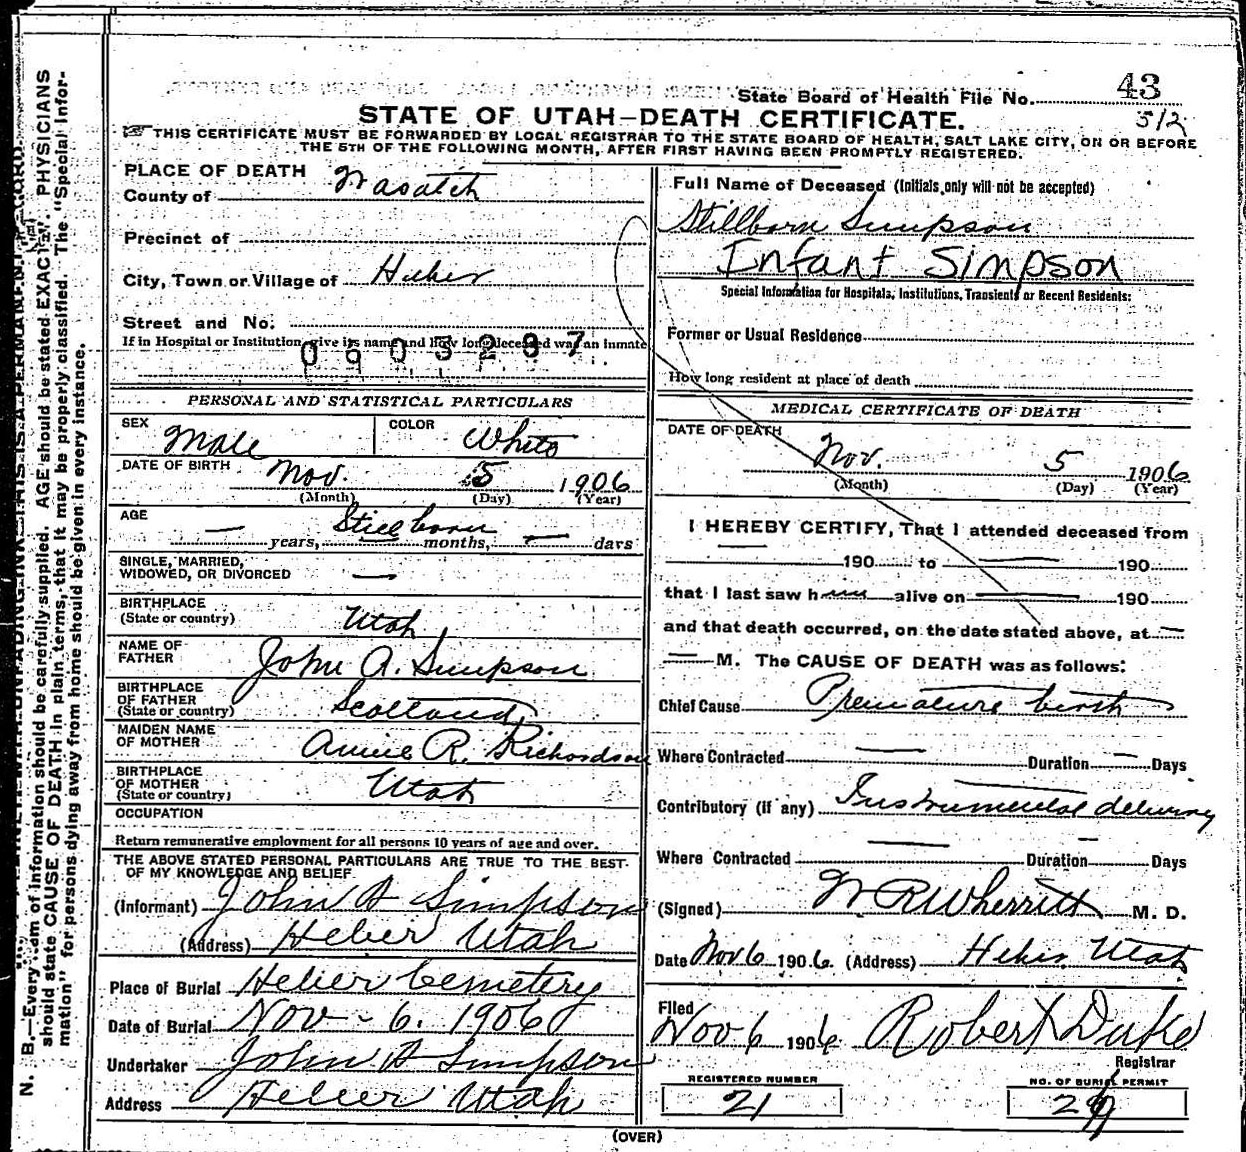 State Board of Health File No. 43
STATE OF UTAH—DEATH CERTIFICATE.
512
THIS CERTIFICATE MUST BE FORWARDED BY LOCAL REGISTRAR TO THE STATE BOARD OF HEALTH, SALT LAKE CITY, ON OR BEFORE
THE 5TH OF THE FOLLOWING MONTH, AFTER FIRST HAVING BEEN PROMPTLY REGISTERED.
PLACE OF DEATH
County of Wasatch
Precinct of
City, Town or Village of Heber
Street and No.
If in Hospital or Institution, give its name and how long deceased was an inmate
0603287
PERSONAL AND STATISTICAL PARTICULARS
SEX Male COLOR White
DATE OF BIRTH Nov. 5 1906
(Month) (Day) (Year)
AGE — Stillborn
years, — months, — days
SINGLE, MARRIED,
WIDOWED, OR DIVORCED —
BIRTHPLACE
(State or country) Utah
NAME OF
FATHER John A. Simpson
BIRTHPLACE
OF FATHER
(State or country) Scotland
MAIDEN NAME
OF MOTHER Annie R. Richardson
BIRTHPLACE
OF MOTHER
(State or country) Utah
OCCUPATION
Return remunerative employment for all persons 10 years of age and over.
THE ABOVE STATED PERSONAL PARTICULARS ARE TRUE TO THE BEST
OF MY KNOWLEDGE AND BELIEF
(Informant) John A Simpson
(Address) Heber Utah
Place of Burial Heber Cemetery
Date of Burial Nov - 6. 1906
Undertaker John A Simpson
Address Heber Utah
Full Name of Deceased (Initials only will not be accepted)
Stillborn Simpson
Infant Simpson
Special Information for Hospitals, Institutions, Transients or Recent Residents:
Former or Usual Residence
How long resident at place of death
MEDICAL CERTIFICATE OF DEATH
DATE OF DEATH
Nov. 5 1906
(Month) (Day) (Year)
I HEREBY CERTIFY, That I attended deceased from
— 190 to — 190
that I last saw h alive on — 190
and that death occurred, on the date stated above, at —
— M. The CAUSE OF DEATH was as follows:
Chief Cause Premature birth
Where Contracted — Duration — Days
Contributory (if any) Instrumental delivery
Where Contracted — Duration — Days
(Signed) W R Wherritt M. D.
Date Nov 6 1906 (Address) Heber Utah
Filed
Nov 6 1906 Robert Duke
Registrar
REGISTERED NUMBER
21
NO. OF BURIAL PERMIT
(OVER)
N. B.—Every item of information should be carefully supplied. AGE should be stated EXACTLY. PHYSICIANS
should state CAUSE OF DEATH in plain terms, that it may be properly classified. The "Special Infor-
mation" for persons dying away from home should be given in every instance.